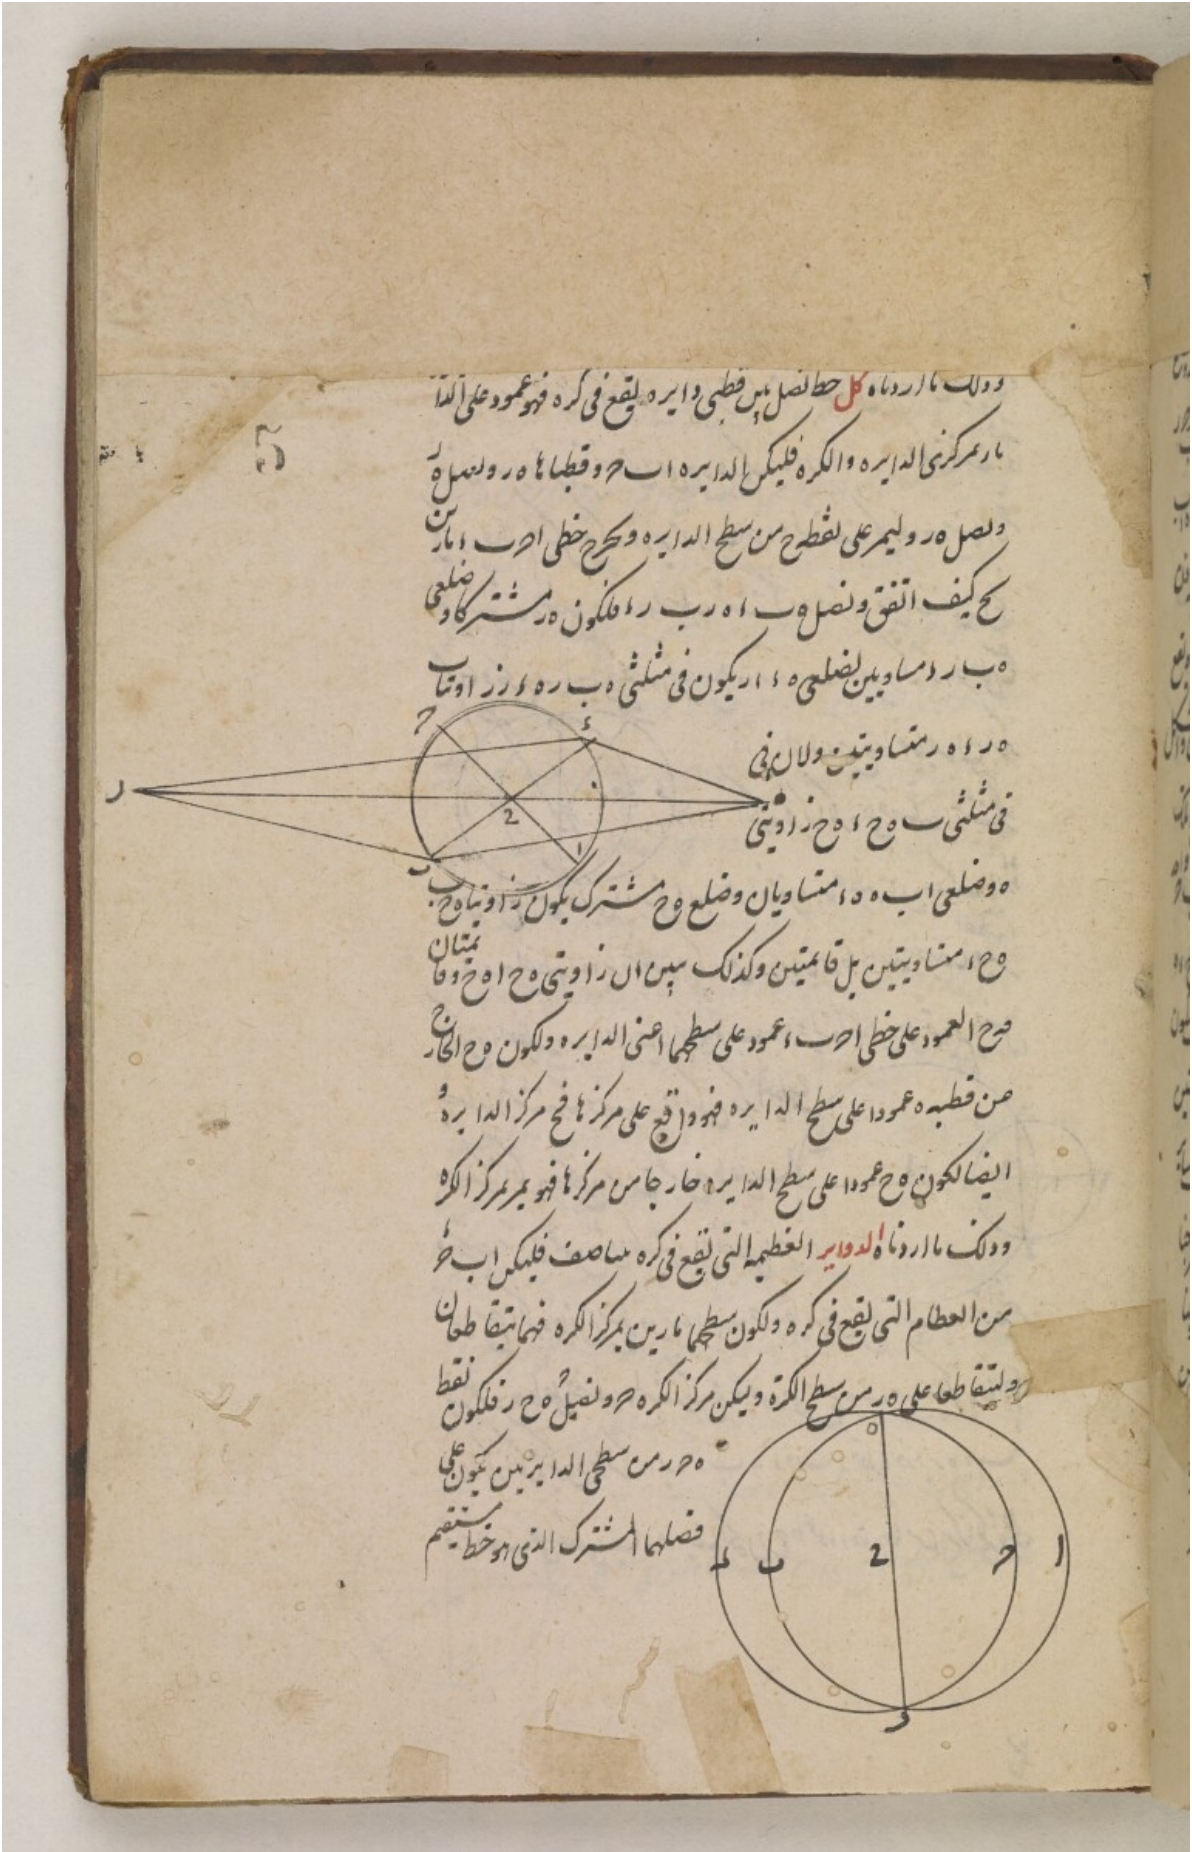 وذلك ما اردناه كل خط تصل بين قطبى دايره يقع فى كره فهو عمود على الدا
مار بمركزى الدايره والكره فليكن الدايره اب ح وقطباها ه ر ونصل ه ر
ونصل ه ر وليمر على نقطة ح من سطح الدايره ونخرج خطى ا ح ب ء مارين
بح كيف اتفق ونصل ه ب ء ه ر ب ر ء فلكون ه ر مشتركا و ضلعى
ه ب ر ء مساويين لضلعى ه ء ء ر يكون فى مثلثى ه ب ر ه ء ر زاويتا ب
ه ر ء ه ر متساويتين ولان فى
فى مثلثى ب ه ح ء ه ح زاويتى
ه وضلعى اب ه ه ء متساويان وضلع ه ح مشترك يكون زاويتا ه ح ب
ه ح ء متساويتين بل قايمتين وكذلك نبين ان زاويتى ه ح ا ه ح ح قايمتان
فه ح العمود على خطى ا ح ب ء عمود على سطحهما اعنى الدايره ولكون ه ح الخارج
من قطبه ه عمودا على سطح الدايره فهو واقع على مركزها فح مركز الدايره و
ايضا لكون ه ح عمودا على سطح الدايره خارجا من مركزها فهو يمر بمركز الكره
وذلك ما اردناه الدواير العظيمه التى تقع فى كره تتناصف فليكن اب ح ء
من العظام التى تقع فى كره ولكون سطحهما مارين بمركز الكره فهما يتقاطعان
وليتقاطعا على ه ر من سطح الكرة وليكن مركز الكره ح ونصل ه ح ر فلكون نقط
ه ح ر من سطحى الدايرتين يكون على
فصلهما المشترك الذى هو خط مستقيم